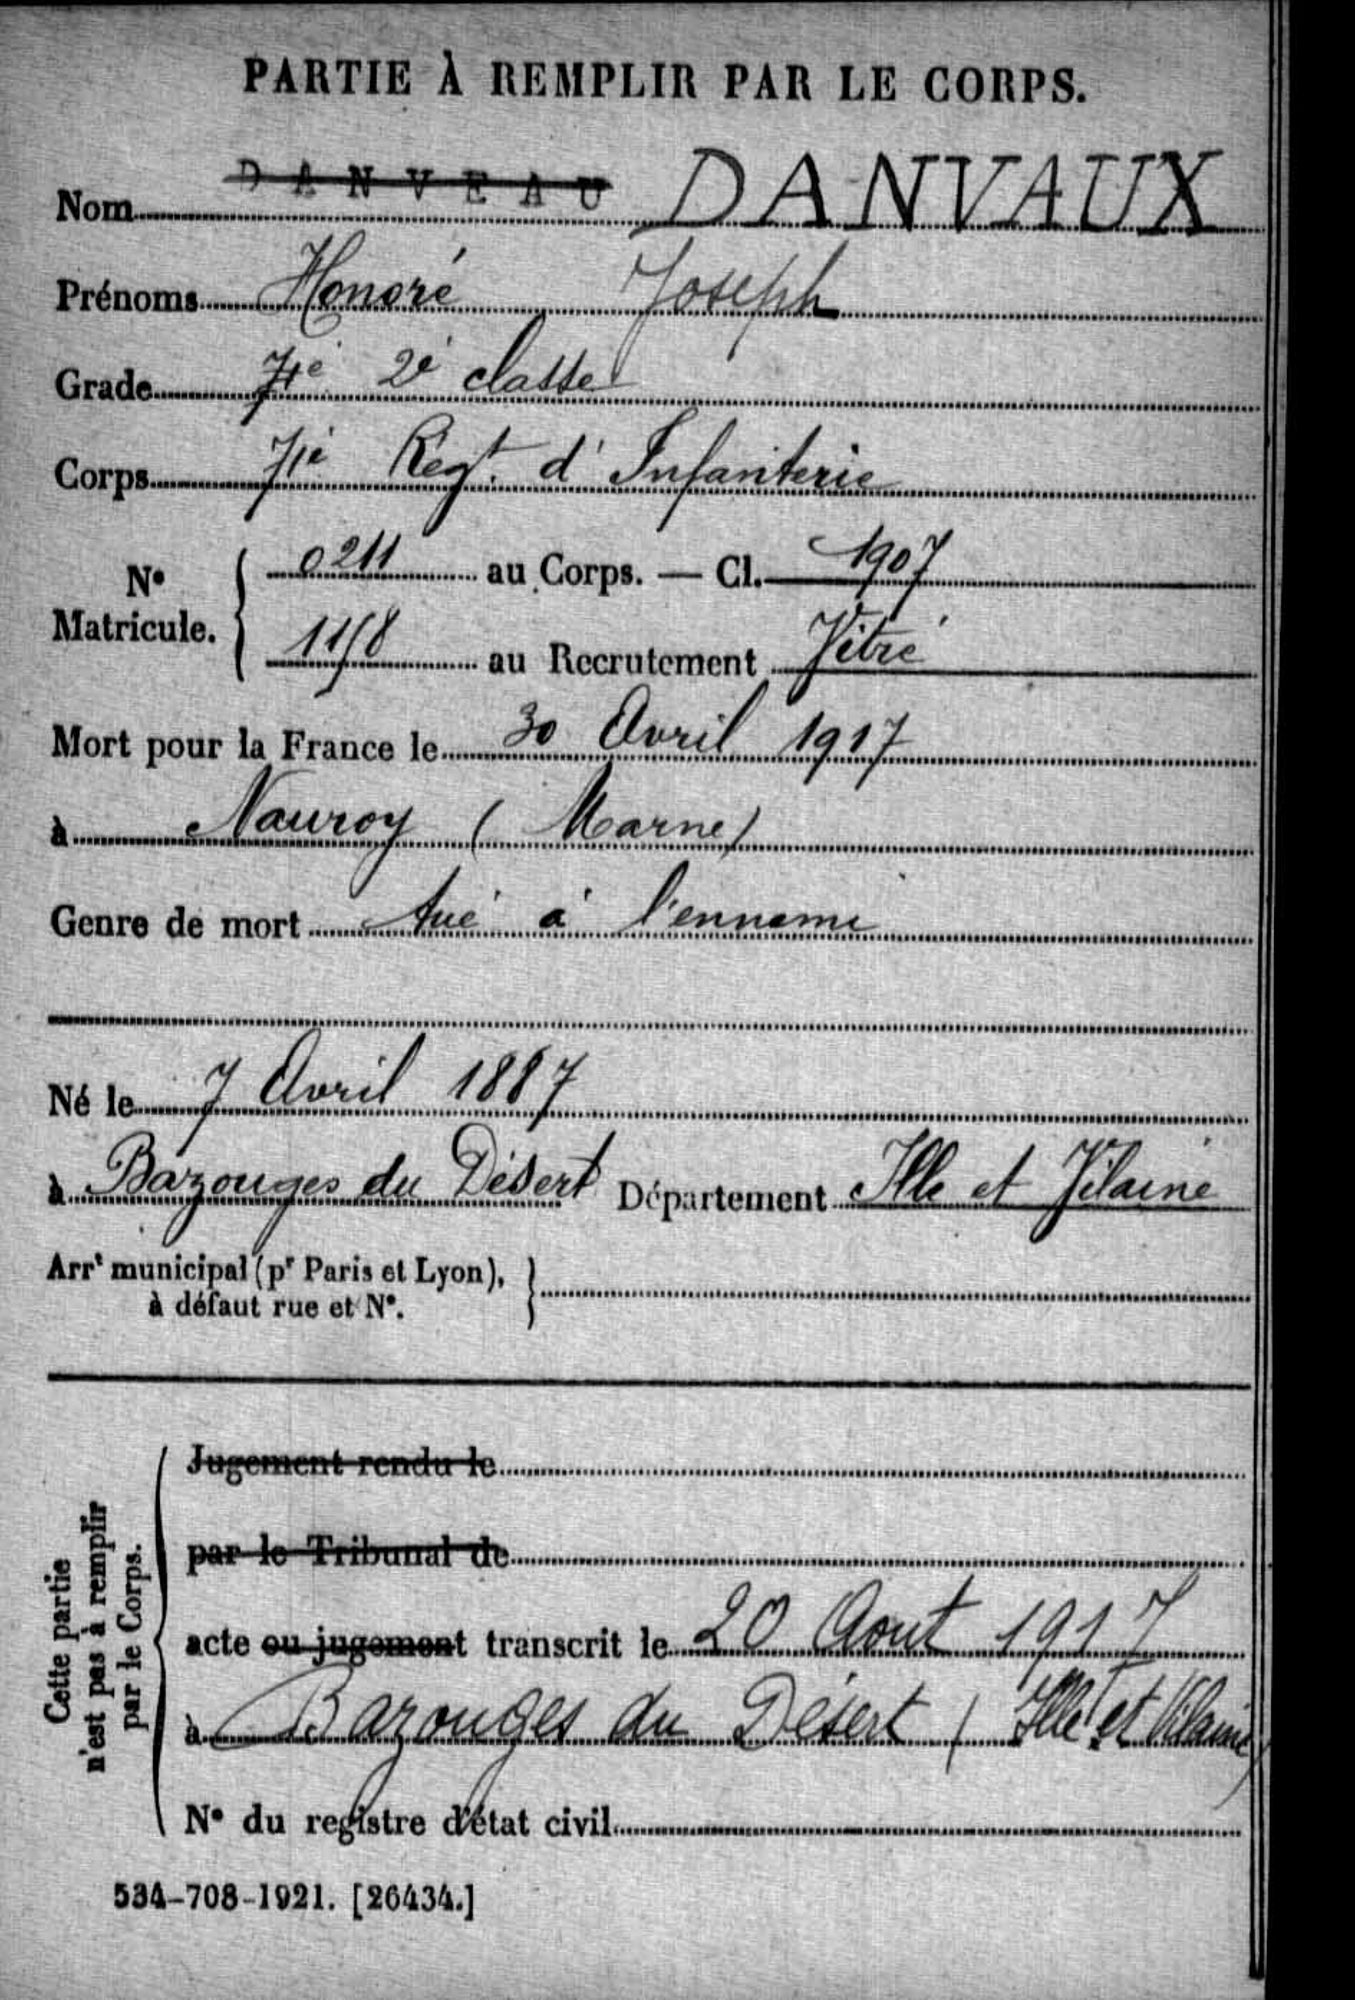 PARTIE À REMPLIR PAR LE CORPS.
Nom DANVEAU DANVAUX
Prénoms Honoré Joseph
Grade 2e classe
Corps 71e Régt. d'Infanterie
No Matricule. { 0211 au Corps. — Cl. 1907
1158 au Recrutement Vitré
Mort pour la France le 30 Avril 1917
à Nauroy (Marne)
Genre de mort tué à l'ennemi
Né le 7 Avril 1887
à Bazouges du Désert Département Ille et Vilaine
Arrt municipal (pr Paris et Lyon), }
à défaut rue et No.
Cette partie
n'est pas à remplir
par le Corps.
Jugement rendu le
par le Tribunal de
acte ou jugement transcrit le 20 Aout 1917
à Bazouges du Désert (Ille et Vilaine)
No du registre d'état civil
534-708-1921. [26434.]